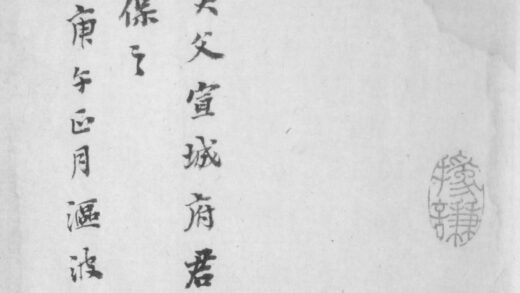 父宣城府君
保之
庚午正月漚波